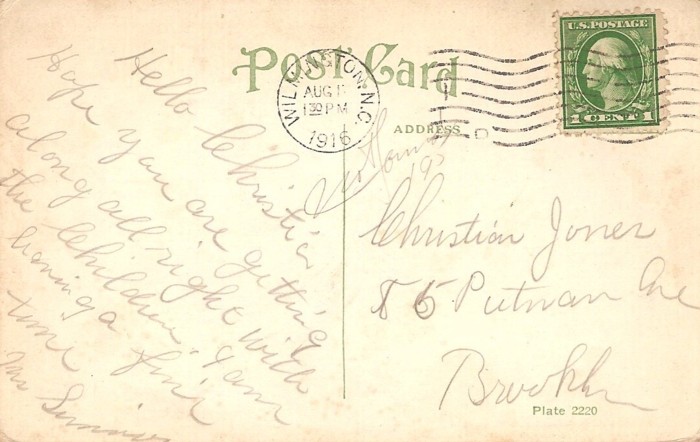 Post Card
U.S. POSTAGE
1 CENT 1
WILMINGTON, N.C.
AUG
1 30 PM
1916
ADDRESS
Hello Christian
Hope you are getting
along all right with
the Children. I am
having a fine
time
Mr
Christian Jones
85 Putnam Ave
Brooklyn
Plate 2220